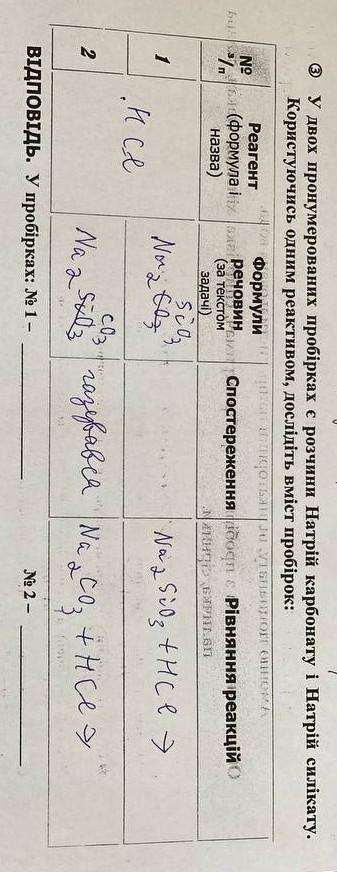 ③ У двох пронумерованих пробірках є розчини Натрій карбонату і Натрій силікату.
Користуючись одним реактивом, дослідіть вміст пробірок:
№ з/п
Реагент (формула і назва)
Формули речовин (за текстом задачі)
Спостереження
Рівняння реакцій
1
HCl
SiO₃
Na₂CO₃
Na₂SiO₃ + HCl →
2
CO₃
Na₂SiO₃
газувався
Na₂CO₃ + HCl →
ВІДПОВІДЬ. У пробірках: № 1 – __________ № 2 – __________